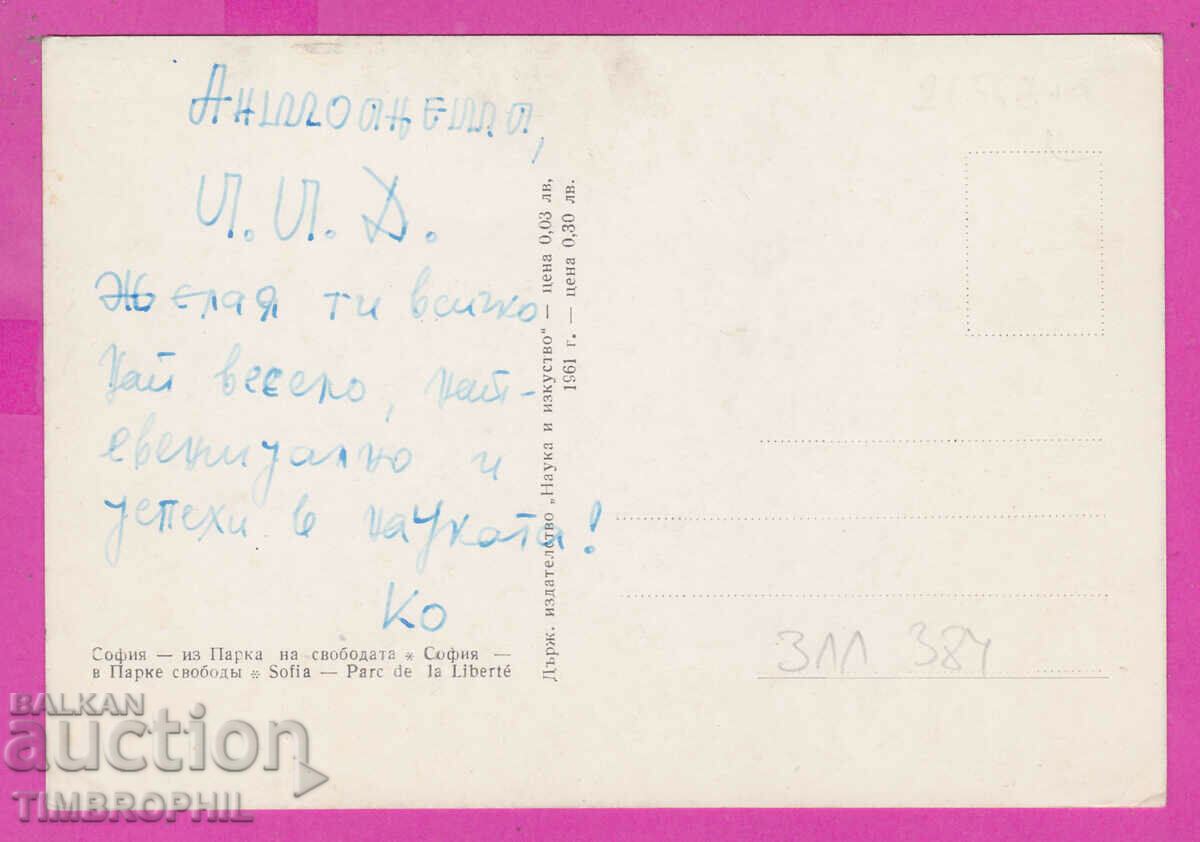 Антоанета,
Ч.Ч.Д.
Желая ти всичко
най весело, най-
евентуално и
успехи в науката!
Ко
София — из Парка на свободата * София —
в Парке свободы * Sofia — Parc de la Liberté
Държ. издателство „Наука и изкуство“ — цена 0,03 лв,
1961 г. — цена 0,30 лв.
ЗЛЛ 384
BALKAN
auction
TIMBROPHIL